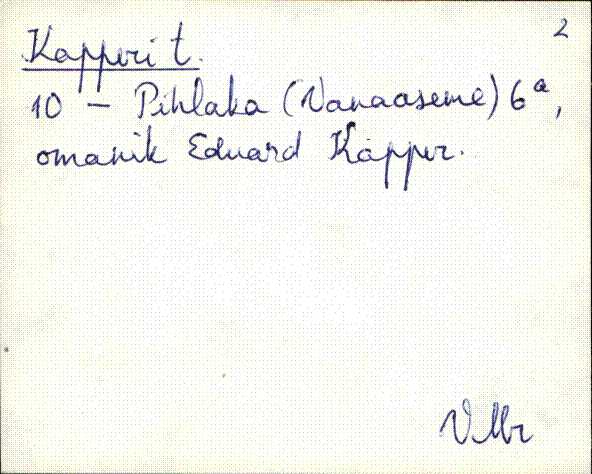 2
Kapperi t.
10 – Pihlaka (Vanaaseme) 6a,
omanik Eduard Kapper.
VMr